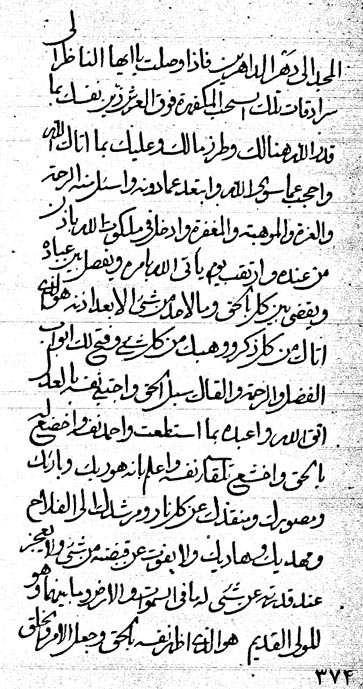 المجد الى دهر الداهرين فاذا وصلت يا ايها الناظر الى
سرادقات تلك السحب المكفهرة فوق العرش زين نفسك بما
قدر الله هنالك وطرز مالك وعليك بما اتاك الله
واحجب عما سوى الله وابتعد عما دونه واسئل منه الرحمة
والعزة والموهبة والمغفرة وادخل في ملكوت الله باذن
من عنده وارتقب يوم ياتي الله بامره ويفصل بين عباده
ويقضي بين كل بالحق وما لاحد من شئ الا بعد اذنه هو الذي
اتاك من كل ذكر ووهبك من كل شئ وفتح لك ابواب
الفضل والرحمة والقاك سبل الحق واجتبى نفسه بالعدل
اتق الله واعبده بما استطعت واحمد نفسه واخضع له
بالحق واخشع تلقاء نفسه واعلم انه هو ربك وبارئك
ومصورك ومنقذك عن كل نار ومرشدك الى الفلاح
ومهديك وهاديك ولا يفوت عن قبضته من شئ ولا يعجز
عند قدرته عن شئ له ما في السموات والارض وما بينهما وهو
المولى القديم هو الذي اظهر نفسه بالحق وجعل الامر والخلق
٣٧٤